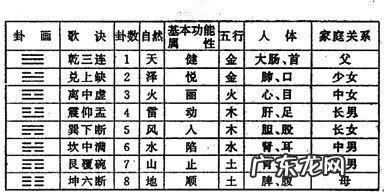 卦画 歌诀 卦数 自然 基本功能属性 五行 人体 家庭关系
乾三连 1 天 健 金 大肠、首 父
兑上缺 2 泽 悦 金 肺、口 少女
离中虚 3 火 丽 火 心、目 中女
震仰盂 4 雷 动 木 肝、足 长男
巽下断 5 风 入 木 胆、股 长女
坎中满 6 水 陷 水 肾、耳 中男
艮覆碗 7 山 止 土
坤六断 8 地 顺 土 母
广东龙网